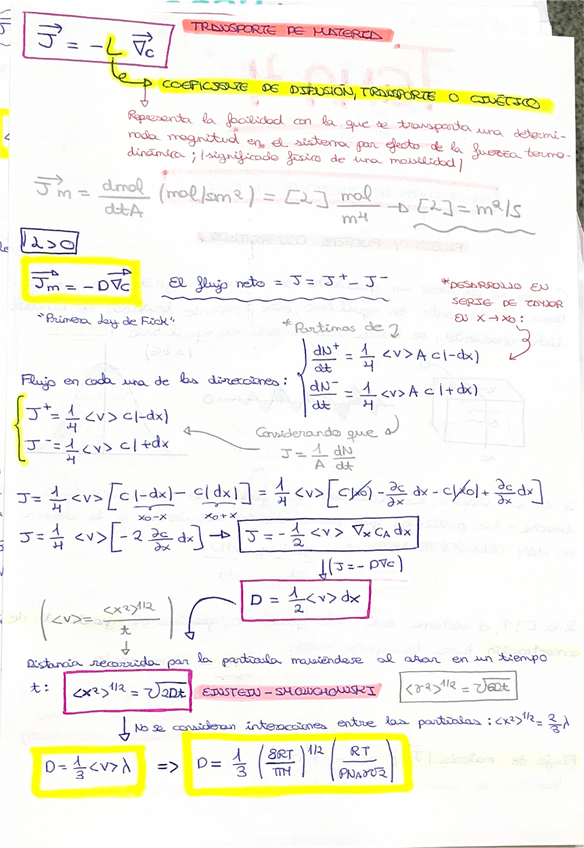 TRANSPORTE DE MATERIA
J⃗ = -L ∇⃗c
COEFICIENTE DE DIFUSIÓN, TRANSPORTE O CINÉTICO
Representa la facilidad con la que se transporta una determi-
nada magnitud en el sistema por efecto de la fuerza termo-
dinámica; (significado físico de una movilidad)
J⃗m = dmol/dtA (mol/sm²) = [2] mol/m⁴ → [2] = m²/s
L>0
J⃗m = -D∇⃗c
El flujo neto = J = J⁺ - J⁻
"Primera ley de Fick".
*DESARROLLO EN
SERIE DE TAYLOR
EN X→X₀:
*Partimos de
dN⁺/dt = 1/4 <v> A c(-dx)
dN⁻/dt = 1/4 <v> A c(+dx)
Flujo en cada una de las direcciones:
J⁺ = 1/4 <v> c(-dx)
J⁻ = 1/4 <v> c(+dx
Considerando que
J = 1/A dN/dt
J = 1/4 <v> [c(-dx) - c(dx)] = 1/4 <v> [c(x₀) - ∂c/∂x dx - c(x₀) + ∂c/∂x dx]
x₀-x x₀+x
J = 1/4 <v> [-2 ∂c/∂x dx] → J = -1/2 <v> ∇ₓ c_A dx
(J = -D∇c)
D = 1/2 <v> dx
(<v> = <x²>^1/2 / t)
Distancia recorrida por la partícula moviéndose al azar en un tiempo
t: <x²>^1/2 = √2Dt EINSTEIN-SMOWCHOWSKI <r²>^1/2 = √6Dt
No se consideran interacciones entre las partículas: <x²>^1/2 = 2/3 λ
D = 1/3 <v> λ => D = 1/3 (8RT/πM)^1/2 (RT/PNAσ√2)